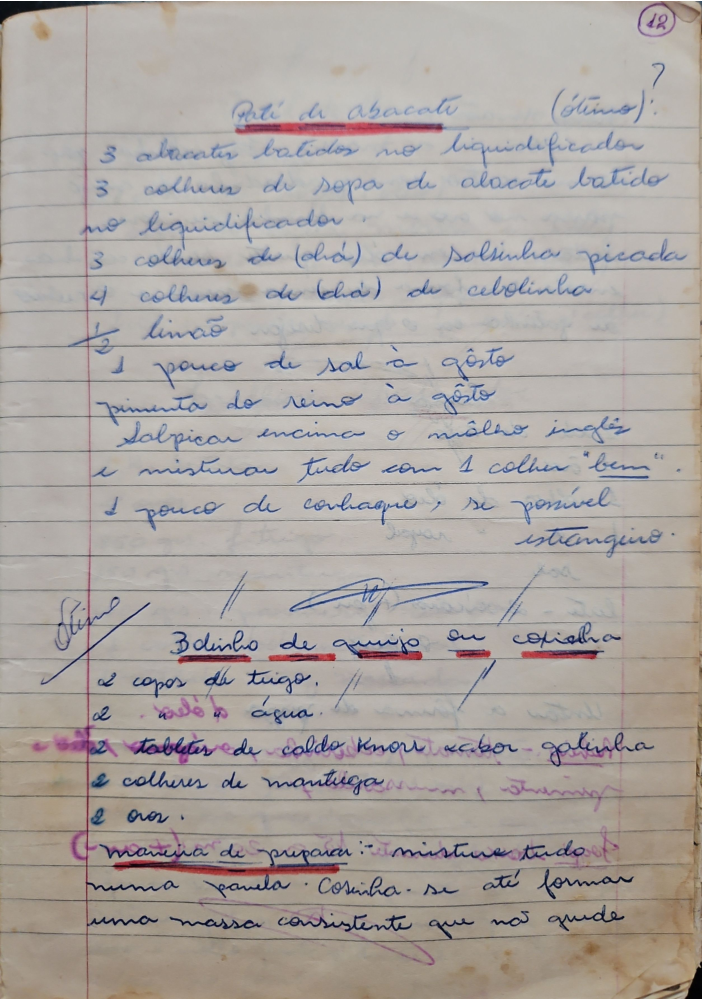 12
?
Patê de abacate (ótimo)!
3 abacates batidos no liquidificador
3 colheres de sopa de abacate batido
no liquidificador.
3 colheres de (chá) de salsinha picada
4 colheres de (chá) de cebolinha
1/2 limão
1 pouco de sal à gôsto
pimenta do reino à gôsto
Salpicar encima o môlho inglês
e misturar tudo com 1 colher "bem".
1 pouco de conhaque, se possível
estrangeiro.
Ótimo
Bolinho de queijo ou coxinha
2 copos de trigo.
2 " " água.
2 tabletes de caldo Knorr sabor galinha
2 colheres de manteiga
2 ovos.
maneira de preparar:- misture tudo
numa panela. Cosinha-se até formar
uma massa consistente que não grude